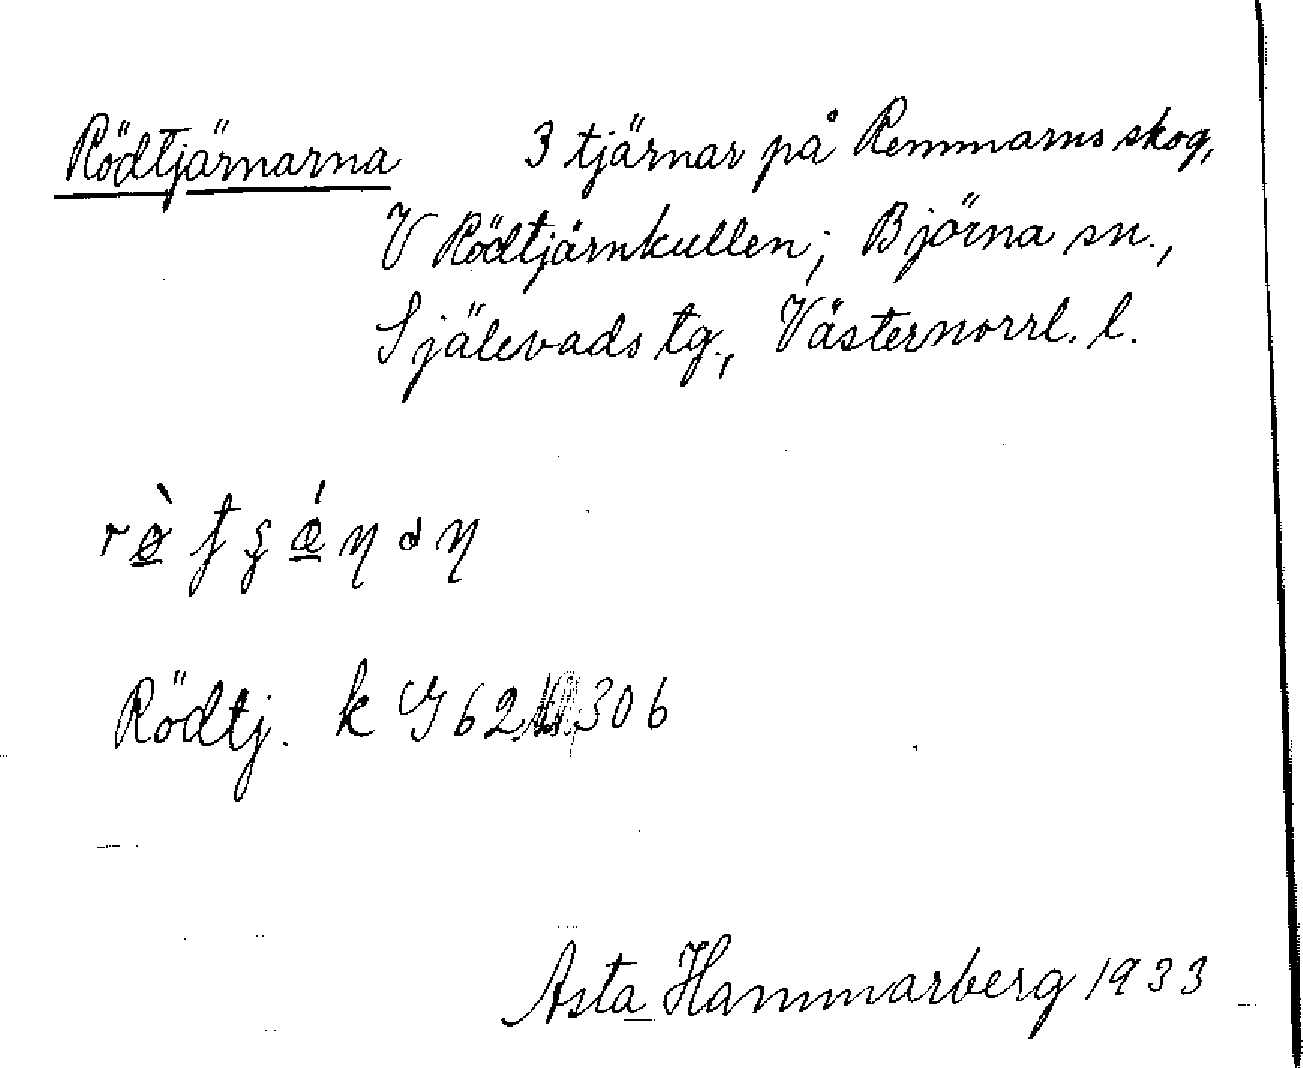 Rödtjärnarna 3 tjärnar på Remmarns skog,
V Rödtjärnkullen; Björna sn.,
Själevads tg., Västernorrl. l.
Rödtj. k G 62 306
Asta Hammarberg 1933